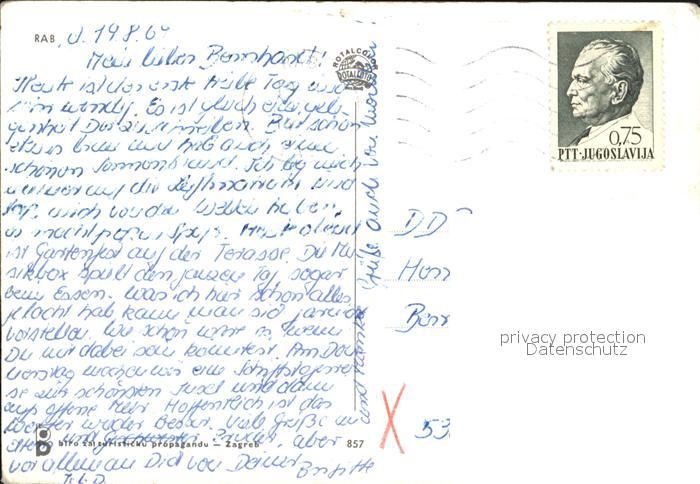 RAB, d. 19.8.6
Mein lieber Bernhardt!
Heute ist der erste Tag und
Es ist gleich eine gele-
genheit Dir zu schreiben. Bin schon
braun und hab auch einen
schönen Sonnenbrand. Ich leg mich
immer auf die Luftmatratze und
laß mich von den Wellen treiben,
es macht Spaß. Heute abend
ist Gartenfest auf der Terasse. Die Mu
sikbox spielt den ganzen Tag sogar
beim Essen. Was ich hier schon alles
gelacht hab kann man sich garnicht
vorstellen. Wie schön wäre es, wenn
Du mit dabei sein könntest. Am Don
nerstag machen wir eine Schiffs
se zur schönsten Insel und dann
aufs offene Meer. Hoffentlich ist das
Wetter wieder besser. Viele Grüße an
Eltern und Bruder, aber
vor allem an Dich von Deiner
Brigitte
J. l. D.
Grüße auch von
und
ROTALCOLOR
ROTALFOTO
0,75
PTT·JUGOSLAVIJA
DD
Bern
X 53
privacy protection
Datenschutz
biro za turističku propagandu — Zagreb
857